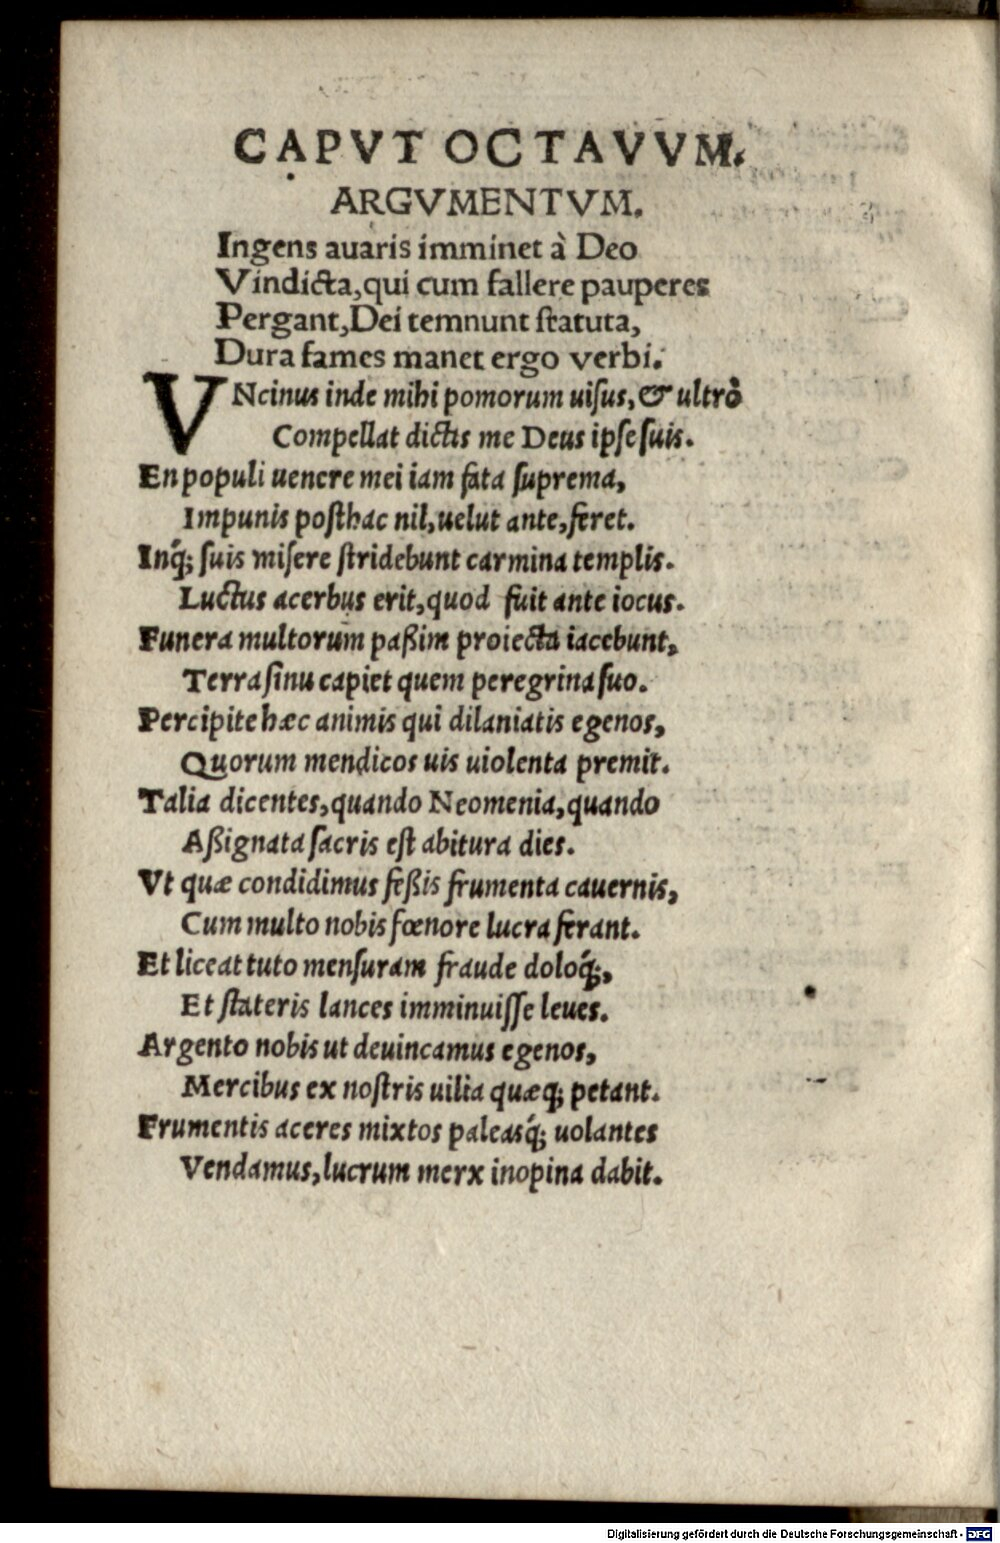 CAPVT OCTAVVM.
ARGVMENTVM.
Ingens auaris imminet à Deo
Vindicta,qui cum fallere pauperes
Pergant,Dei temnunt statuta,
Dura fames manet ergo verbi.
VNcinus inde mihi pomorum uisus,& ultrò
Compellat dictis me Deus ipse suis.
En populi uenere mei iam fata suprema,
Impunis posthac nil,uelut ante,feret.
Inq́; suis misere stridebunt carmina templis.
Luctus acerbus erit,quod fuit ante iocus.
Funera multorum paßim proiecta iacebunt,
Terra sinu capiet quem peregrina suo.
Percipite hæc animis qui dilaniatis egenos,
Quorum mendicos uis uiolenta premit.
Talia dicentes,quando Neomenia,quando
Aßignata sacris est abitura dies.
Vt quæ condidimus feßis frumenta cauernis,
Cum multo nobis fœnore lucra ferant.
Et liceat tuto mensuram fraude doloq́;,
Et stateris lances imminuisse leues.
Argento nobis ut deuincamus egenos,
Mercibus ex nostris uilia quæq; petant.
Frumentis aceres mixtos paleasq́; uolantes
Vendamus,lucrum merx inopina dabit.
Digitalisierung gefördert durch die Deutsche Forschungsgemeinschaft - DFG